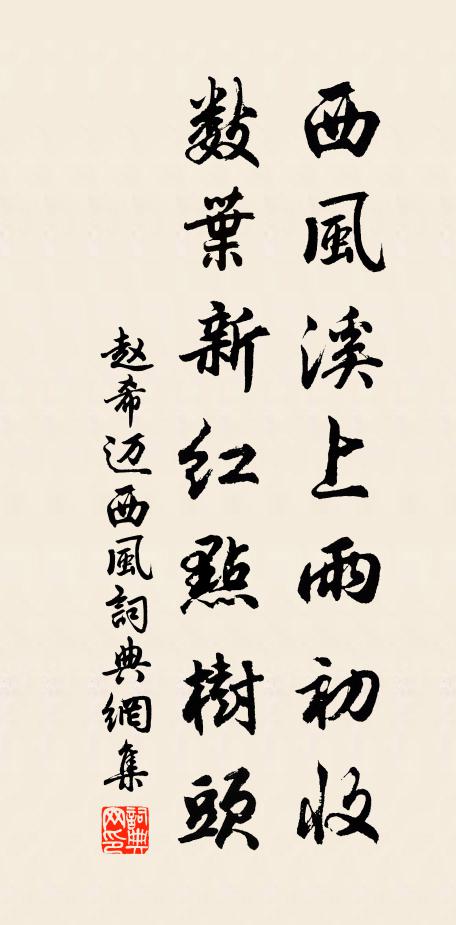 西風溪上雨初收
數葉新红點樹頭
赵希迈西風詞典網集
詞典网印